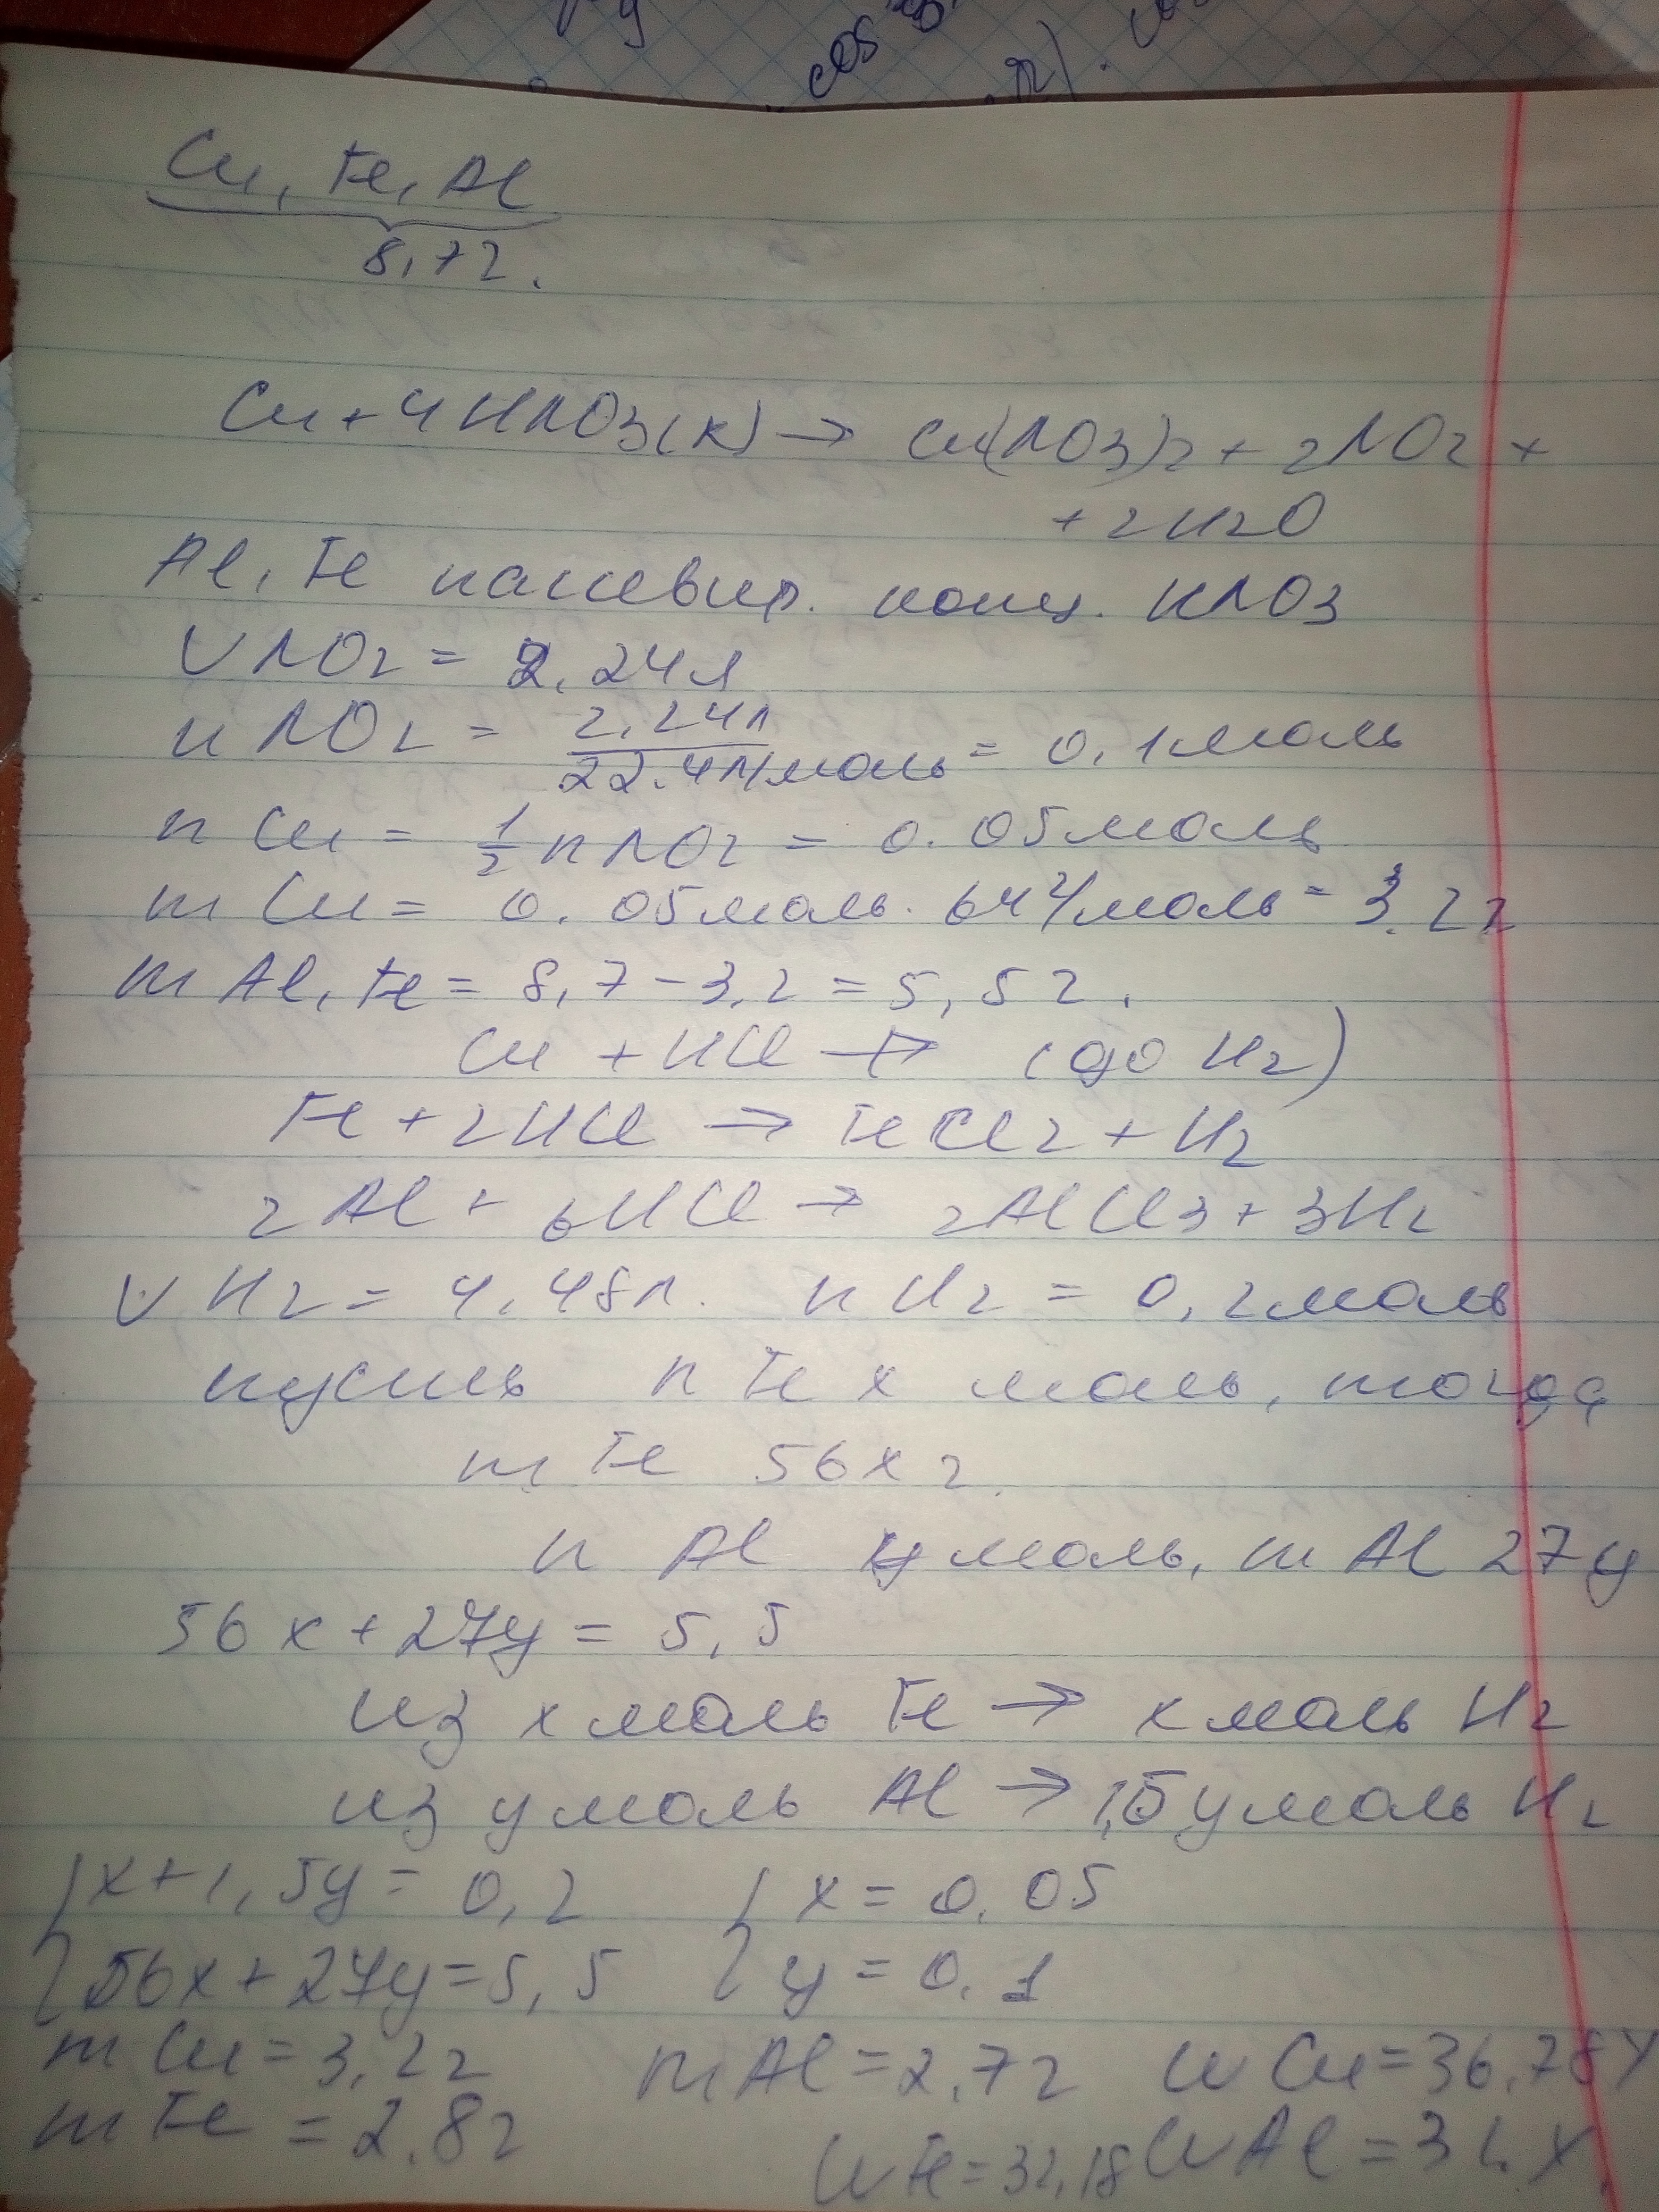 cos
Cu, Fe, Al
8,7г.
Cu + 4HNO3(к) → Cu(NO3)2 + 2NO2 +
+ 2H2O
Al, Fe пассивир. конц. HNO3
V NO2 = 2,24л
n NO2 = 2,24л / 22.4л/моль = 0,1моль
n Cu = 1/2 n NO2 = 0.05моль
m Cu = 0.05моль · 64г/моль = 3.2г
m Al, Fe = 8,7 - 3,2 = 5,5г.
Cu + HCl ↛ (до H2)
Fe + 2HCl → FeCl2 + H2
2Al + 6HCl → 2AlCl3 + 3H2
V H2 = 4,48л. n H2 = 0,2моль
пусть n Fe x моль, тогда
m Fe 56x г.
n Al y моль, m Al 27y
56x + 27y = 5,5
из x моль Fe → x моль H2
из y моль Al → 1,5y моль H2
{ x + 1,5y = 0,2 { x = 0.05
{ 56x + 27y = 5,5 { y = 0.1
m Cu = 3,2г m Al = 2,7г W Cu = 36,78%
m Fe = 2.8г W Fe = 32,18 W Al =